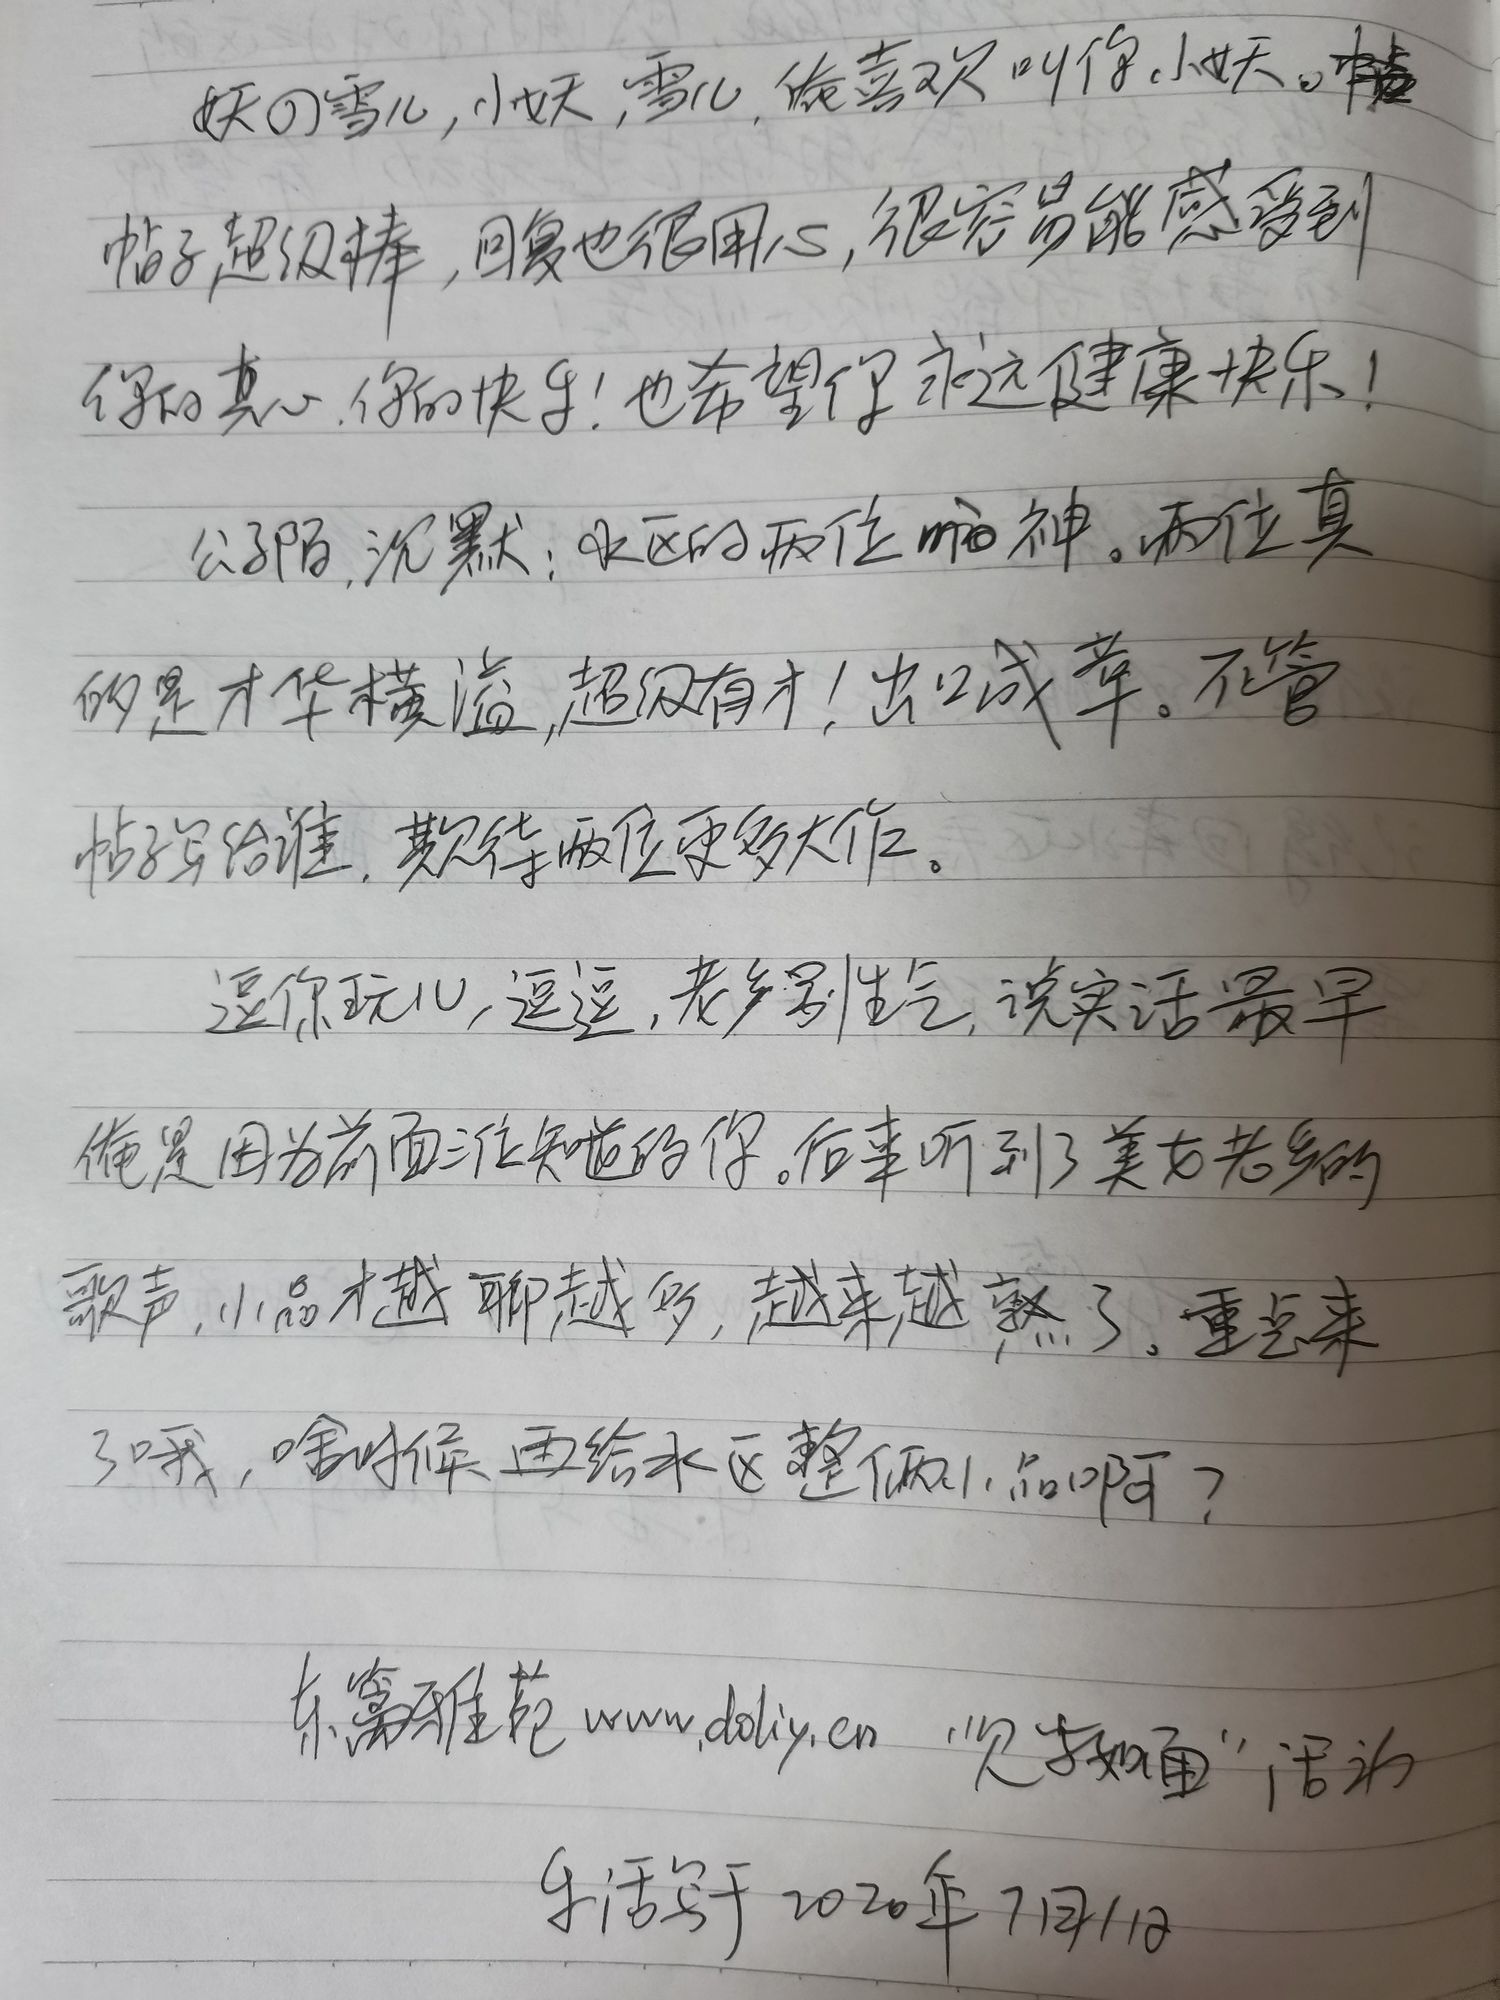 妖の雪儿,小妖,雪儿,俺喜欢叫你小妖。
帖子超级棒,回复也很用心,很容易能感受到
你的真心、你的快乐!也希望你永远健康快乐!
公子陌,沉默:水区的两位嘞神。两位真
的是才华横溢,超级有才!出口成章。不管
帖子写给谁,期待两位更多大作。
逗你玩儿,逗逗,老乡别生气,说实话最早
俺是因为前面三位知道的你。后来听到了美女老乡的
歌声,小品才越聊越多,越来越熟了。重点来
了哦,啥时候再给水区整俩小品啊?
东篱雅苑 www.doliy.cn “见字如面”活动
乐活写于2020年7月1日